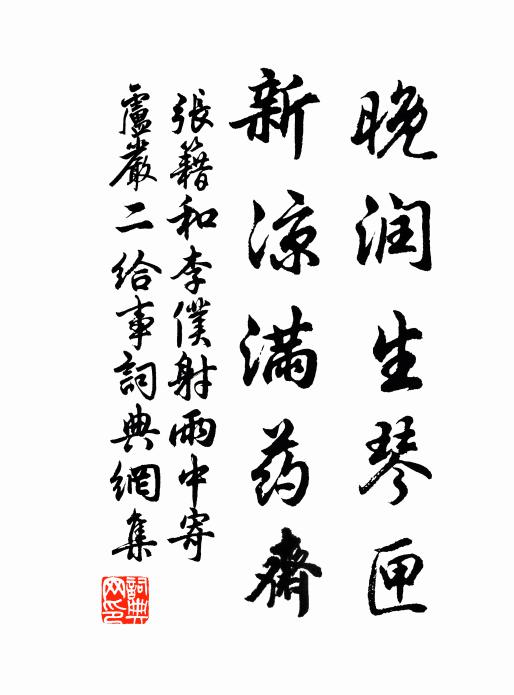 晚润生琴匣
新凉满药齋
張籍和李僕射雨中寄
盧嚴二給事詞典網集
詞典
网印